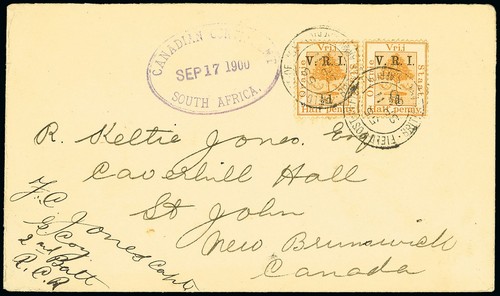 CANADIAN CONTINGENT
SEP 17 1900
SOUTH AFRICA.
Vrij Vrij
V. R. I. V. R. I.
Oranje Staat Oranje Staat
½d ½d
Half penny Half penny
FIELD POST
R. Keltie Jones Esq
Caverhill Hall
St John
New Brunswick
Canada
F. C. Jones Capt.
G Coy.
2nd Batt
R.C.R